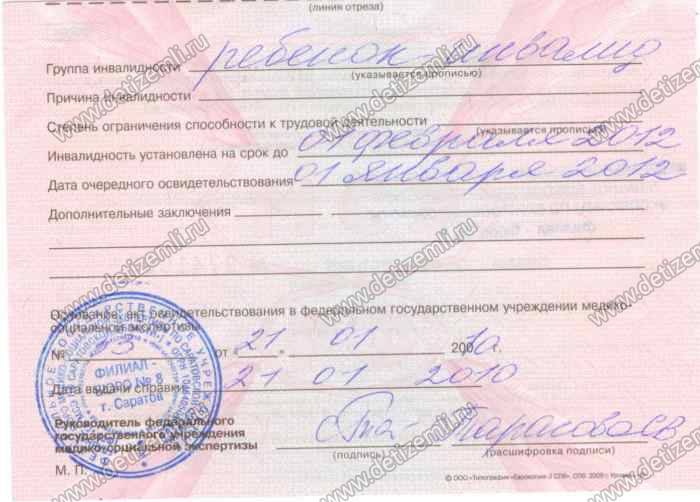 (линия отреза)
Группа инвалидности ребенок-инвалид
(указывается прописью)
Причина инвалидности
Степень ограничения способности к трудовой деятельности
(указывается прописью)
Инвалидность установлена на срок до 01 февраля 2012
Дата очередного освидетельствования 01 января 2012
Дополнительные заключения
Основание: акт освидетельствования в федеральном государственном учреждении медико-
социальной экспертизы
№ от « 21 » 01 200 10
Дата выдачи справки 21 01 2010
ФИЛИАЛ -
БЮРО № 8
г. Саратов
Руководитель федерального
государственного учреждения
медико-социальной экспертизы
(подпись) (расшифровка подписи)
М. П.
www.detizemli.ru